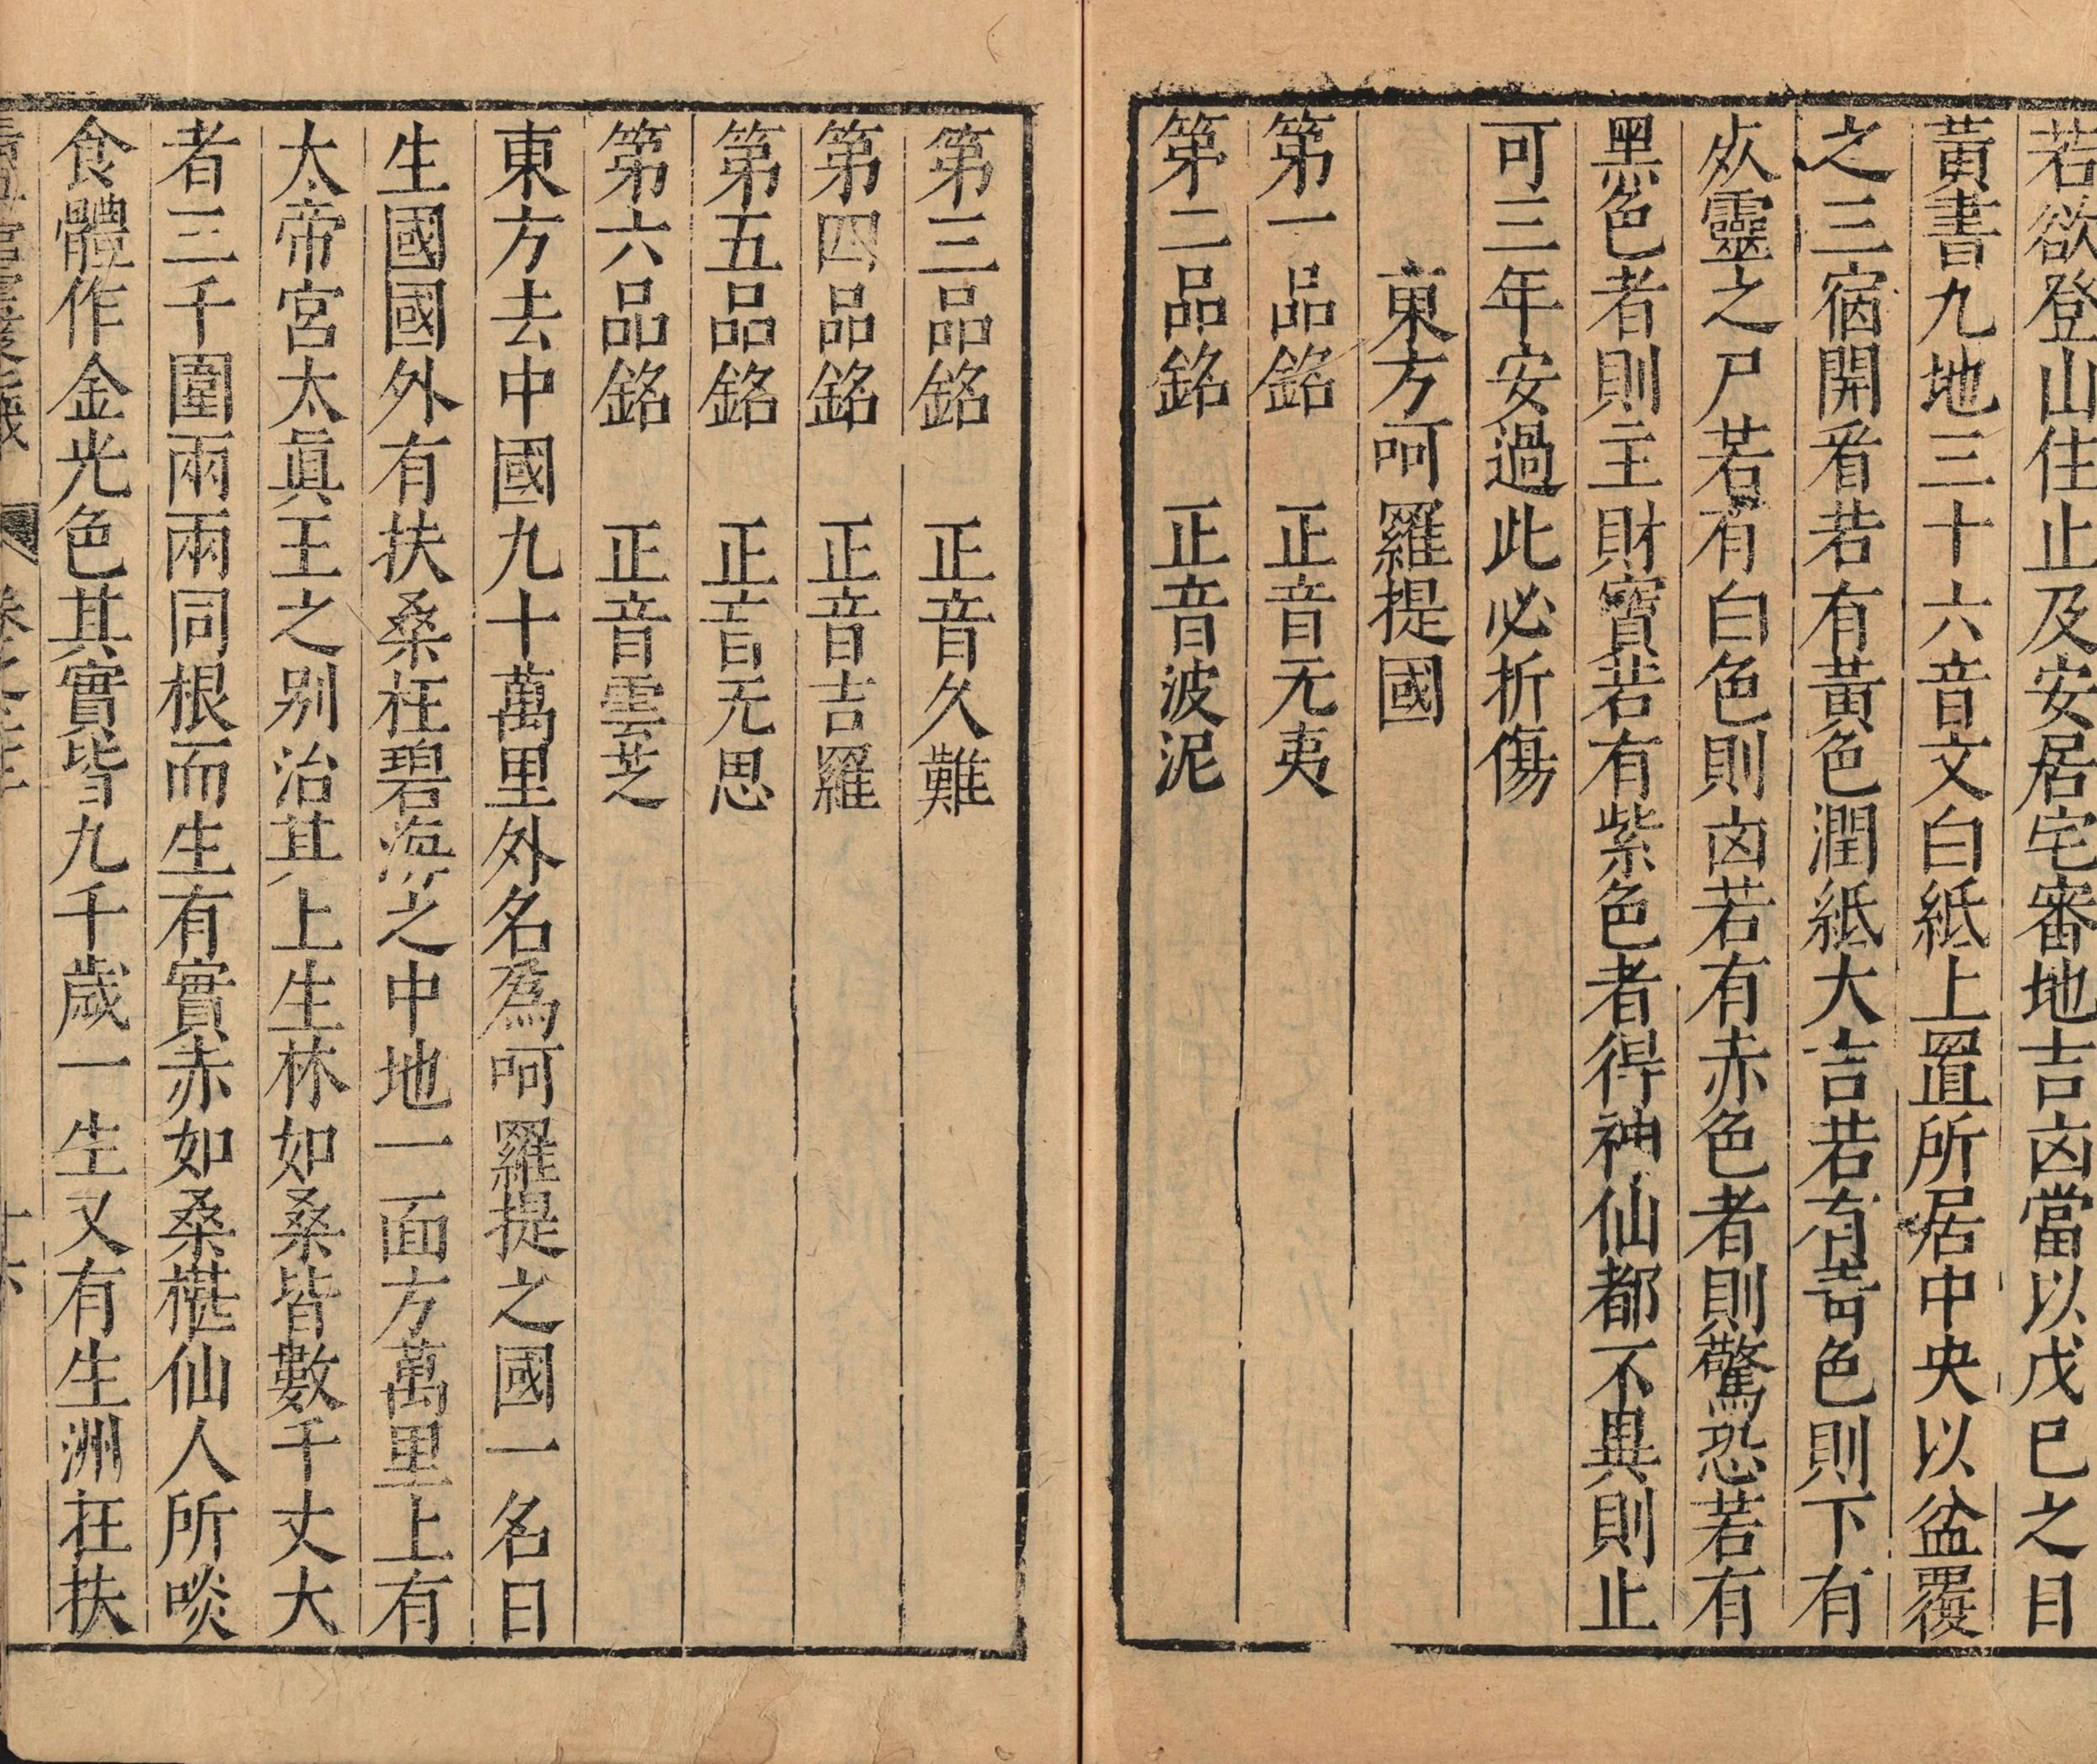 若欲登山住止及安居宅審地吉凶當以戊巳之日
黃書九地三十六音文白紙上置所居中央以盆覆
之三宿開看若有黃色潤紙大吉若有青色則下有
歿靈之尸若有白色則凶若有赤色者則驚恐若有
黑色者則主財寶若有紫色者得神仙都不異則止
可三年安過此必折傷
東方呵羅提國
第一品銘　正音无夷
第二品銘　正音波泥
第三品銘　正音久難
第四品銘　正音吉羅
第五品銘　正音无思
第六品銘　正音雲芝
東方去中國九十萬里外名為呵羅提之國一名日
生國國外有扶桑在碧海之中地一面方萬里上有
太帝宮太真王之別治其上生林如桑皆數千丈大
者三千圍兩兩同根而生有實赤如桑椹仙人所啖
食體作金光色其實皆九千歲一生又有生洲在扶